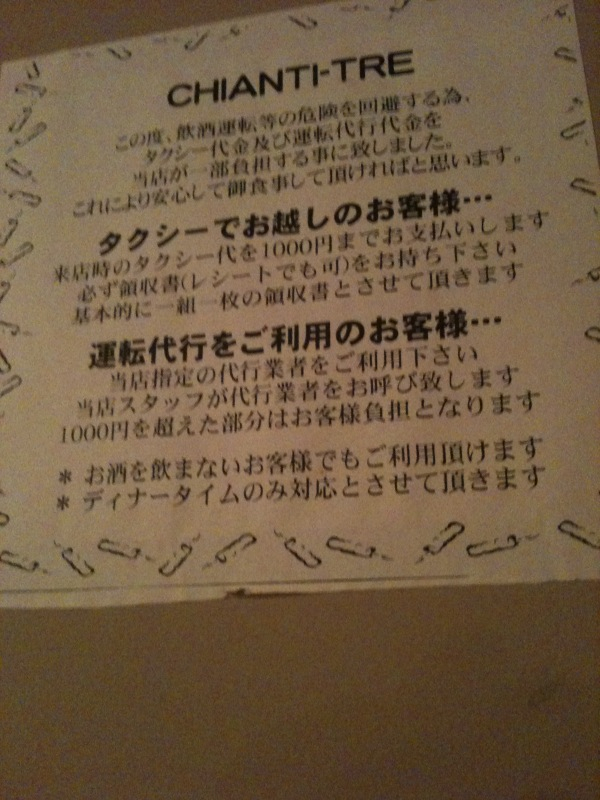 CHIANTI-TRE
この度、飲酒運転等の危険を回避する為、
タクシー代金及び運転代行代金を
当店が一部負担する事に致しました。
これにより安心して御食事して頂ければと思います。
タクシーでお越しのお客様…
来店時のタクシー代を1000円までお支払いします
必ず領収書(レシートでも可)をお持ち下さい
基本的に一組一枚の領収書とさせて頂きます
運転代行をご利用のお客様…
当店指定の代行業者をご利用下さい
当店スタッフが代行業者をお呼び致します
1000円を超えた部分はお客様負担となります
* お酒を飲まないお客様でもご利用頂けます
* ディナータイムのみ対応とさせて頂きます